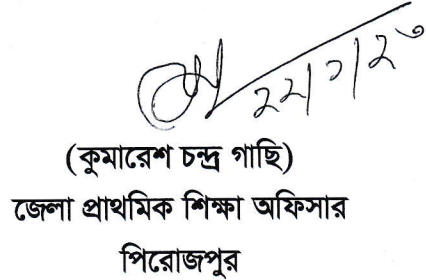 (কুমারেশ চন্দ্র গাছি)
জেলা প্রাথমিক শিক্ষা অফিসার
পিরোজপুর